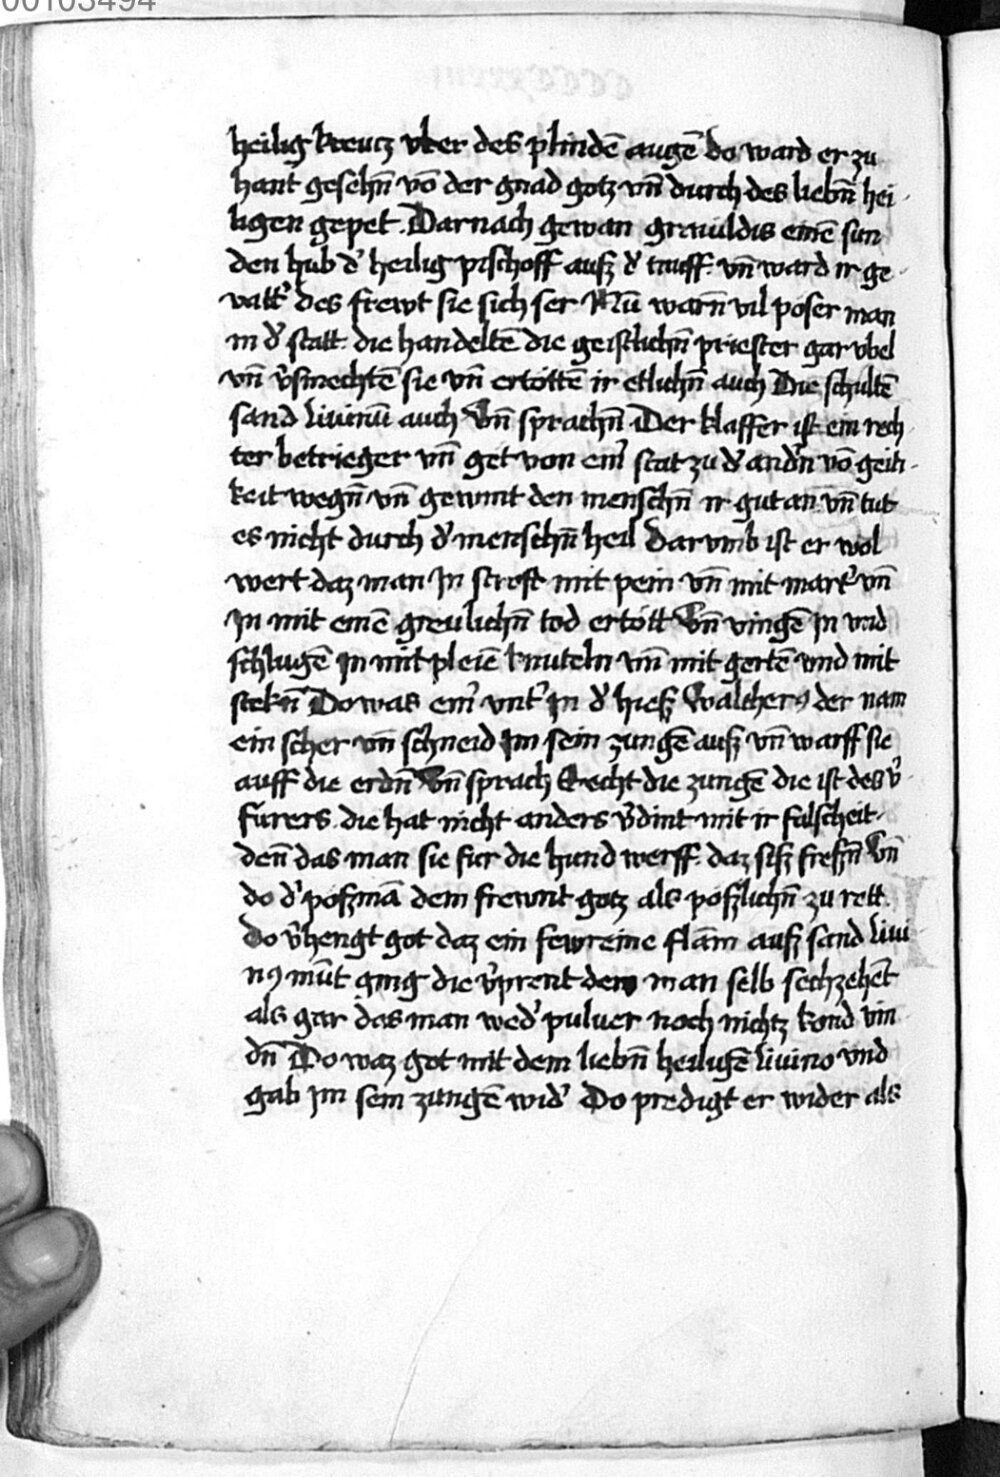 00103494
heilig kreucz vber des plindē augē do ward er zu
hant gesehn̄ vō der gnad gotz vn̄ durch des liebn̄ hei-
ligen gepet. Darnach gewan grauuldis einē sun
den hub d' heilig pischoff ausz d' tauff. vn̄ ward ir ge-
vatt' des frewt sie sich ser Nū warn̄ vil poser man
in d' statt. die handeltē die geistlichn̄ priester gar vbel
vn̄ v̓smechtē sie vn̄ ertöttē ir etlichn̄ auch Die schultē
sand liuinū auch Vn̄ sprachn̄ Der klaffer ist ein rech
ter betrieger vn̄ get von eim̄ stat zu d' and'n vō geiti-
keit wegn̄ vn̄ gewint den menschn̄ ir gut an vn̄ tut
es nicht durch d' menschn̄ heil Darvmb ist er wol
wert daz man jn stroft mit pein vn̄ mit mart' vn̄
jn mit einē greulichn̄ tod ertött Vn̄ vingē jn vnd
schlugē jn mit pleiē knuteln vn̄ mit gertē vnd mit
stekn̄ Do was ein' vnt' jn d' hiesz Walcherꝰ der nam
ein scher vn̄ schneid jm sein zungē ausz vn̄ warff sie
auff die erdn̄ Vn̄ sprach Secht die zungē die ist des v̓-
furers. die hat nicht anders v̓dint mit ir falscheit-
den̄ das man sie fur die hund werff. daz sisz fressn̄ Vn̄
do d' poszmā dem frewnt gotz als poszlichn̄ zu rett.
Do v̓hengt got daz ein fewreine flam̄ ausz sand liui
nꝰ mūt ging die v̓prent dem man selb sechzehēt
als gar das man wed' puluer noch nichtz kond vin-
dn̄ Do waz got mit dem liebn̄ heiligē liuino vnd
gab jm sein zungē wid' Do predigt er wider als